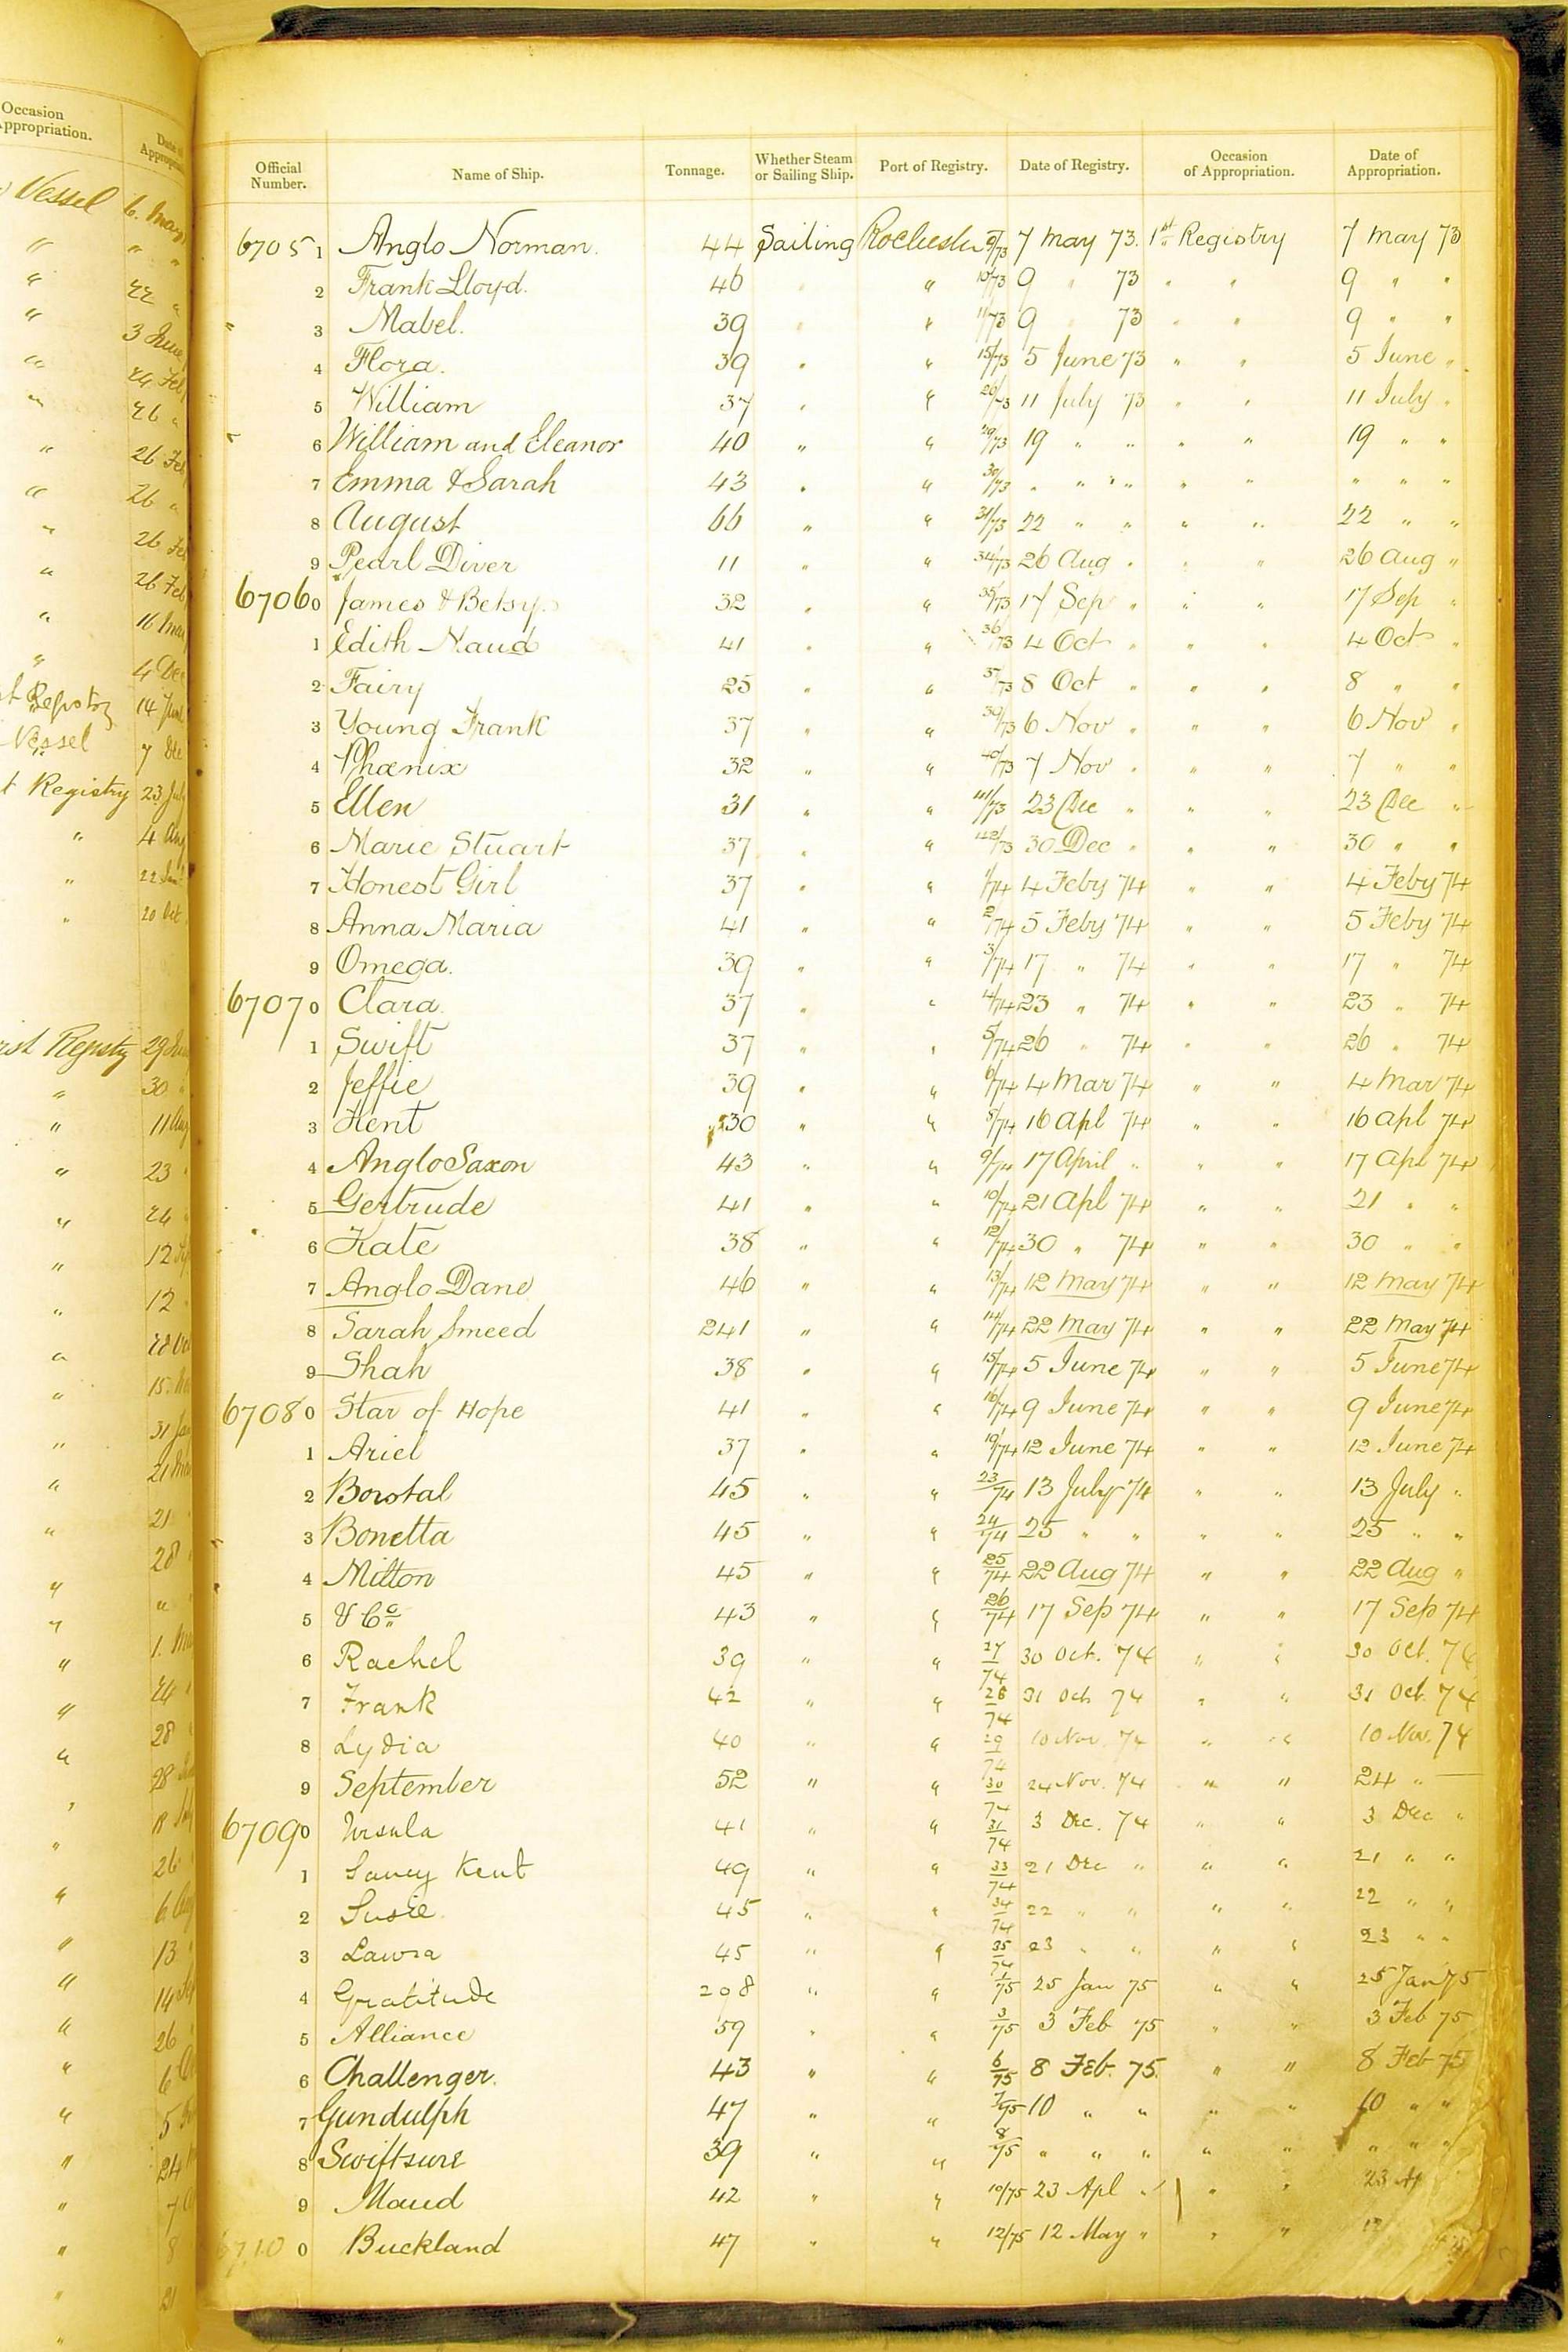 Occasion
Appropriation.
Date of
Vessel 6. May
" "
" 22 "
" 3 June
" 24 Feb
" 26 "
" 26 Feb
" 26 "
" 26 Feb
" 26 Feb
" 16 Mar
" 4 Dec
14 June
Vessel 7 Dec
Registry 23 July
" 4 Aug
" 22
" 20 Oct
Registry 29
" 30
" 11 Aug
" 23
" 24
" 12
" 12
Official Number. Name of Ship. Tonnage. Whether Steam or Sailing Ship. Port of Registry. Date of Registry. Occasion of Appropriation. Date of Appropriation.
67051 Anglo Norman. 44 Sailing Rochester 9/73 7 May 73. 1st Registry 7 May 73
2 Frank Lloyd. 46 " " 10/73 9 " 73 " " 9 " "
3 Mabel. 39 " " 11/73 9 " 73 " " 9 " "
4 Flora. 39 " " 15/73 5 June 73 " " 5 June "
5 William 37 " " 26/73 11 July 73 " " 11 July "
6 William and Eleanor 40 " " 29/73 19 " " " " 19 " "
7 Emma & Sarah 43 " " 30/73 " " " " " " " "
8 August 66 " " 31/73 22 " " " " 22 " "
9 Pearl Diver 11 " " 34/73 26 Aug " " " 26 Aug "
67060 James & Betsy. 32 " " 35/73 17 Sep " " " 17 Sep "
1 Edith Maud 41 " " 36/73 4 Oct " " " 4 Oct "
2 Fairy 25 " " 37/73 8 Oct " " " 8 " "
3 Young Frank 37 " " 39/73 6 Nov " " " 6 Nov "
4 Phœnix 32 " " 40/73 7 Nov " " " 7 " "
5 Ellen 31 " " 41/73 23 Dec " " " 23 Dec "
6 Marie Stuart 37 " " 42/73 30 Dec " " " 30 " "
7 Honest Girl 37 " " 1/74 4 Feby 74 " " 4 Feby 74
8 Anna Maria 41 " " 2/74 5 Feby 74 " " 5 Feby 74
9 Omega. 39 " " 3/74 17 " 74 " " 17 " 74
67070 Clara. 37 " " 4/74 23 " 74 " " 23 " 74
1 Swift 37 " " 5/74 26 " 74 " " 26 " 74
2 Jeffie 39 " " 6/74 4 Mar 74 " " 4 Mar 74
3 Kent 30 " " /74 16 Apl 74 " " 16 Apl 74
4 Anglo Saxon 43 " " 9/74 17 April " " " 17 Apl 74
5 Gertrude 41 " " 10/74 21 Apl 74 " " 21 " "
6 Kate 38 " " 12/74 30 " 74 " " 30 " "
7 Anglo Dane 46 " " 13/74 12 May 74 " " 12 May 74
8 Sarah Smeed 241 " " 14/74 22 May 74 " " 22 May 74
9 Shah 38 " " 15/74 5 June 74 " " 5 June 74
67080 Star of Hope 41 " " 16/74 9 June 74 " " 9 June 74
1 Ariel 37 " " 19/74 12 June 74 " " 12 June 74
2 Borstal 45 " " 23/74 13 July 74 " " 13 July "
3 Bonetta 45 " " 24/74 25 " " " " 25 " "
4 Milton 45 " " 25/74 22 Aug 74 " " 22 Aug "
5 & Co 43 " " 26/74 17 Sep 74 " " 17 Sep 74
6 Rachel 39 " " 27/74 30 Oct. 74 " " 30 Oct. 74
7 Frank 42 " " 28/74 31 Oct 74 " " 31 Oct. 74
8 Lydia 40 " " 29/74 10 Nov. 74 " " 10 Nov. 74
9 September 52 " " 30/74 24 Nov. 74 " " 24 "
67090 Ursula 41 " " 31/74 3 Dec. 74 " " 3 Dec "
1 Saucy Kent 49 " " 33/74 21 Dec " " " 21 " "
2 Susie. 45 " " 34/74 22 " " " " 22 " "
3 Laura 45 " " 35/74 23 " " " " 23 " "
4 Gratitude 298 " " 1/75 25 Jan 75 " " 25 Jan 75
5 Alliance 59 " " 3/75 3 Feb 75 " " 3 Feb 75
6 Challenger. 43 " " 6/75 8 Feb. 75. " " 8 Feb 75
7 Gundulph 47 " " 7/75 10 " " " " 10 " "
8 Swiftsure 39 " " 8/75 " " " " " " " "
9 Maud 42 " " 10/75 23 Apl " " " 23 Ap
67100 Buckland 47 " " 12/75 12 May " " " 12